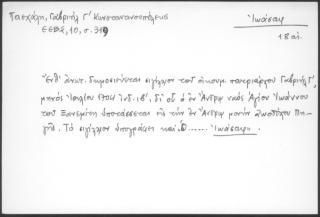 Πασχάλη, Γαβριήλ Γ' Κωνσταντινουπόλεως
ΕΕΒΣ, 10, σ. 319
Ἰωάσαφ
18 αἰ.
Ἔνθ' ἀνωτ. δημοσιεύεται σιγίλλιον τοῦ οἰκουμ. πατριάρχου Γαβριήλ Γ',
μηνὸς Ἰουλίου 1704 ἰνδ. ιβ', δι' οὗ ὁ ἐν Ἄνδρῳ ναὸς Ἁγίου Ἰωάννου
τοῦ ὑποτάσσεται εἰς τὴν ἐν Ἄνδρῳ μονὴν Ζωοδόχου Πη-
γῆς. Τὸ σιγίλλιον ὑπογράφει καὶ ὁ ....... Ἰωάσαφ.